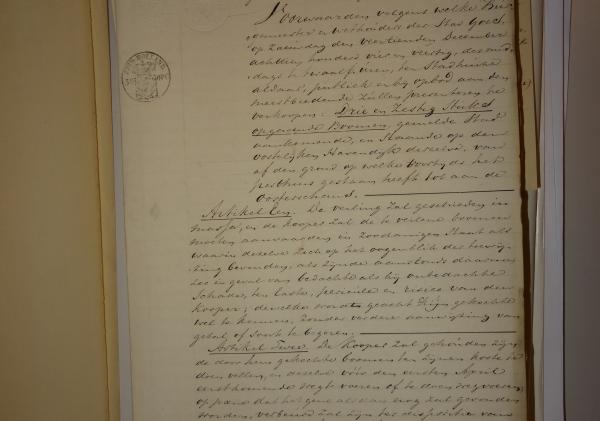 Voorwaarden volgens welke Bur-
gemeester en wethouders der Stad Goes,
op Zaturdag den veertienden December
achttien honderd vier en veertig, des mid-
dags te twaalf uren, ten Stadhuize
aldaar, publiek en bij opbod aan den
meestbiedende zullen presenteren te
verkoopen: Drie en Zestig Stuks
opgaande Boomen, gemelde Stad
aankomende, en staande op den
oostelijken Havendijk derzelve, van
af den grond op welke voortijds het
pesthuis gestaan heeft tot aan de
Oosterschans.
Artikel Een. De veiling zal geschieden in
massa, en de kooper zal de te veilene boomen
moeten aanvaarden in zoodanigen staat als
waarin dezelve zich op het oogenblik der toewij-
zing bevinden, als zijnde aanstonds daarna
zoo in geval van bedachte als bij onbedachte
schade, ten laste, periculo en risico van den
Kooper; dewelke wordt geacht zijn gekochte
wel te kennen, zonder verdere aanwijzing van
getal of soort te begeren.
Artikel Twee. De Kooper zal gehouden zijn
de door hem gekochte boomen ten zijnen koste te
doen vellen, en dezelve vóór den eersten April
eerstkomende weg te voeren of te doen wegvoeren,
op pæne dat hetgene als dan nog zal gevonden
worden, verbeurd zal zijn ter dispositie van